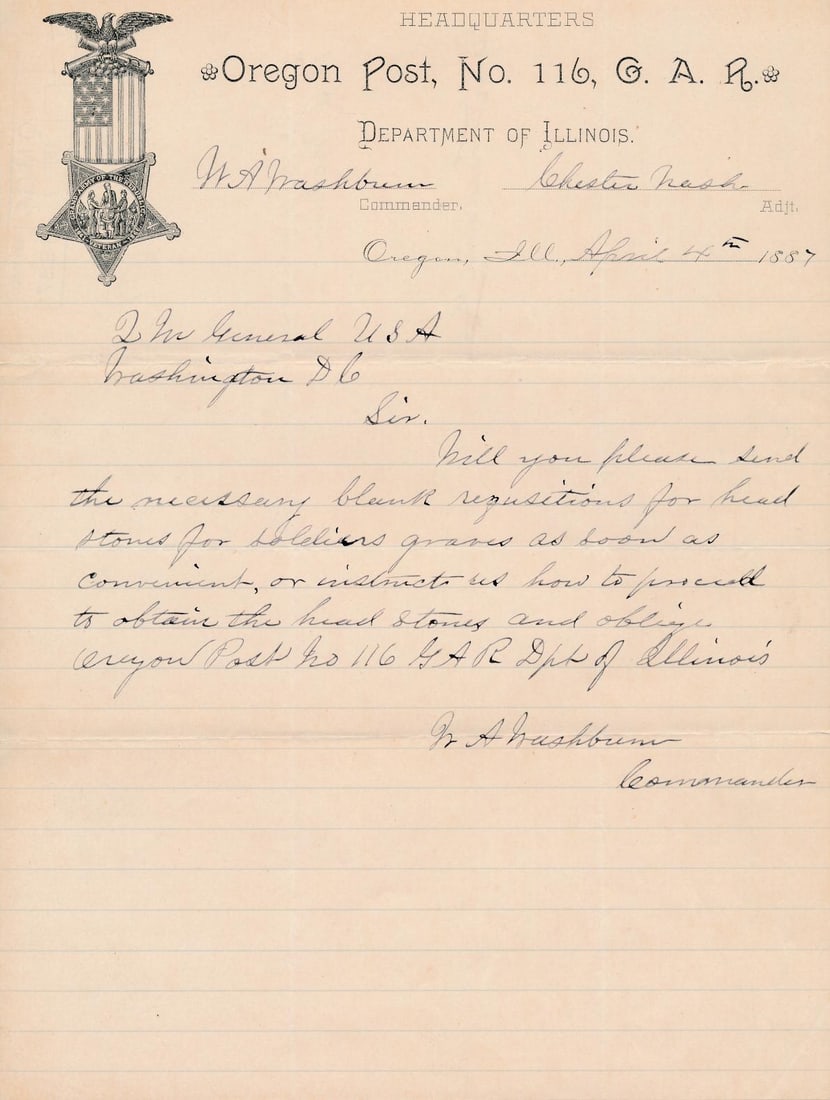 HEADQUARTERS
Oregon Post, No. 116, G. A. R.
DEPARTMENT OF ILLINOIS.
W A Washburn Chester Nash
Commander. Adjt.
Oregon, Ill., April 4th 1887
GRAND ARMY OF THE REPUBLIC
VETERAN
Q M General U S A
Washington D C
Sir.
Will you please send
the necessary blank requsitions for head
stones for soldiers graves as soon as
convenient, or instruct us how to proceed
to obtain the head stones and oblige
Oregon Post No 116 G A R Dpt of Illinois
W A Washburn
Commander